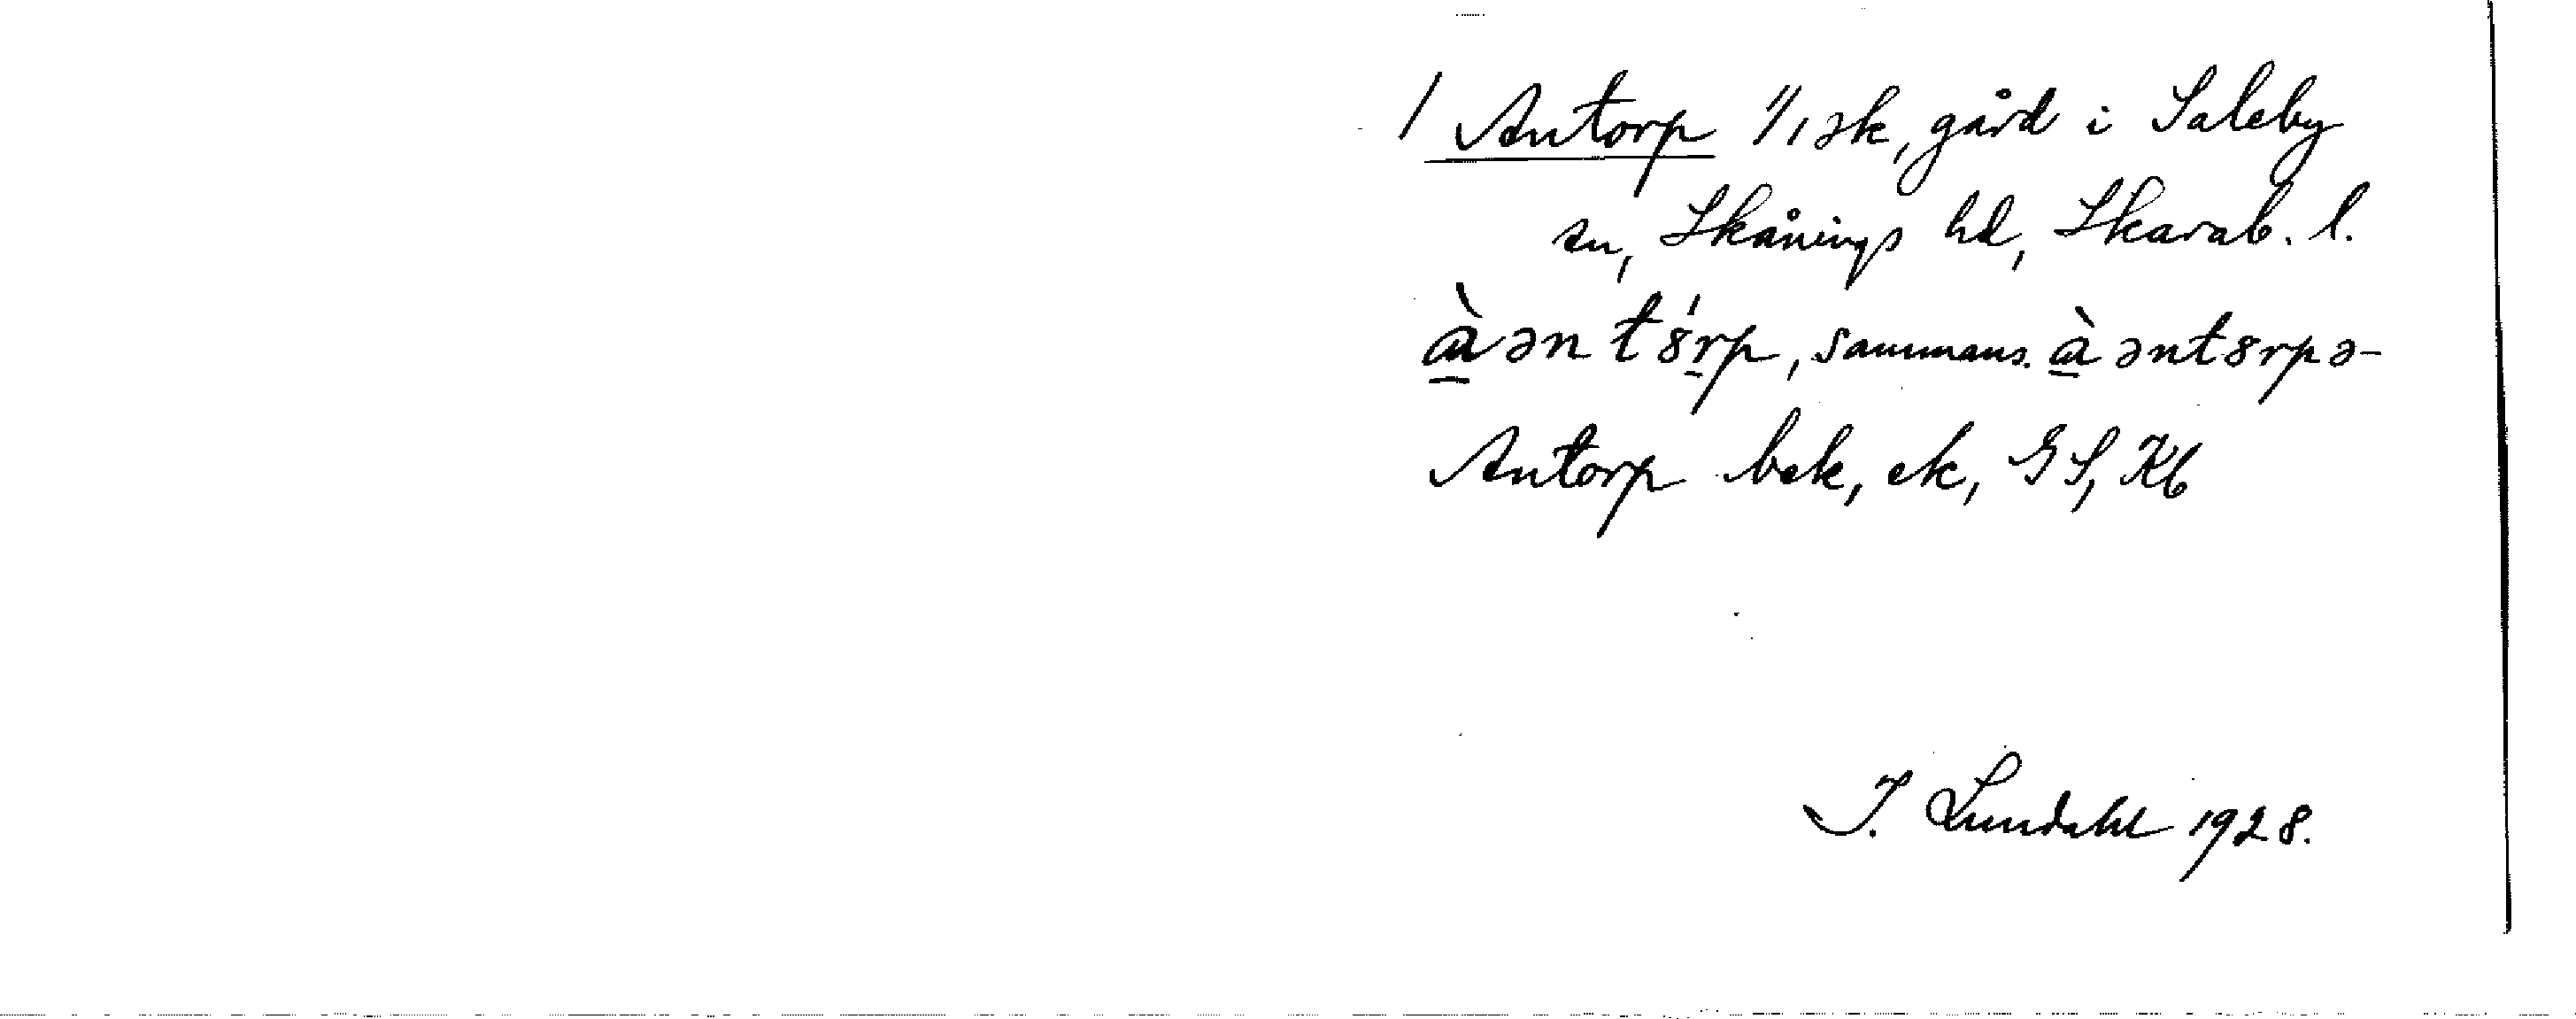 / Antorp 1/1 sk, gård i Saleby
sn, Skånings hd, Skarab. l.
à̱ən tó̱rp, sammans. à̱əntorpə-
Antorp bek, ek, GS, Kb
I. Lundahl 1928.